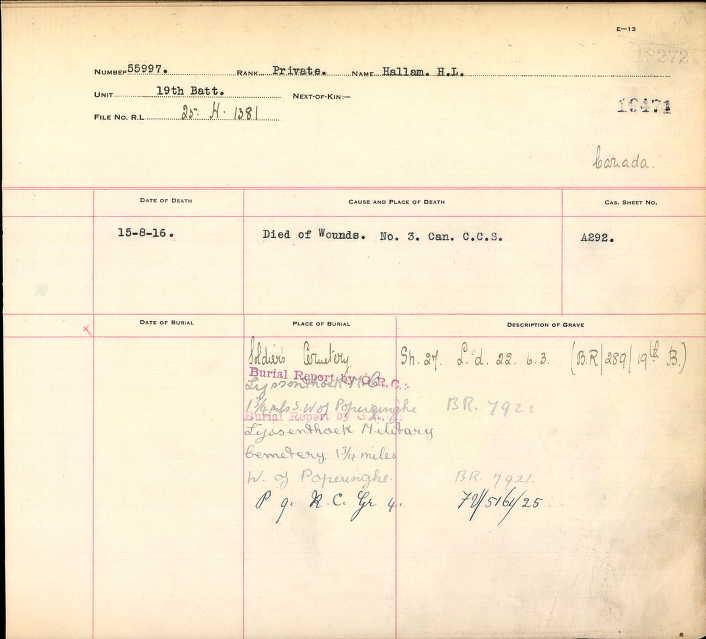 E-13
NUMBER 55997. RANK Private. NAME Hallam. H.L.
UNIT 19th Batt. NEXT-OF-KIN:-
10471
FILE NO. R.L. 25. H. 1381
Canada.
DATE OF DEATH CAUSE AND PLACE OF DEATH CAS. SHEET NO.
15-8-16. Died of Wounds. No. 3. Can. C.C.S. A292.
DATE OF BURIAL PLACE OF BURIAL DESCRIPTION OF GRAVE
Soldier's Cemetery Sh. 27. L.d. 22. 6.3. (B.R/289/19th B.)
Burial Report by G.R.C.:
Lyssenthoek
1¾ mls S.W of Poperinghe BR. 7921
Burial Report by
Lyssenthoek Military
Cemetery 1¾ miles
W. of Poperinghe. BR. 7921.
P 9. R.C. Gr 4. 72/5161/25